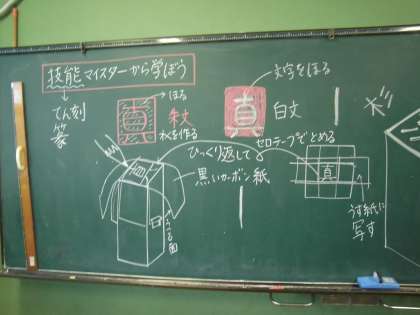 技能マイスターから学ぼう
てん刻
篆
ほる
朱文
わくを作る
文字をほる
真
白文
ひっくり返して
セロテープでとめる
黒いカーボン紙
真
うす紙に
写す